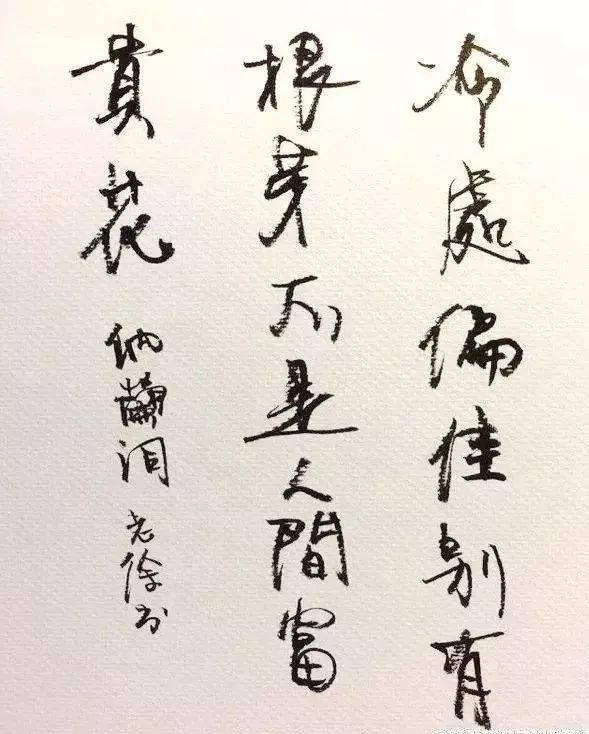 冷處偏佳别有
根芽不是人間富
貴花 纳蘭词 老徐书